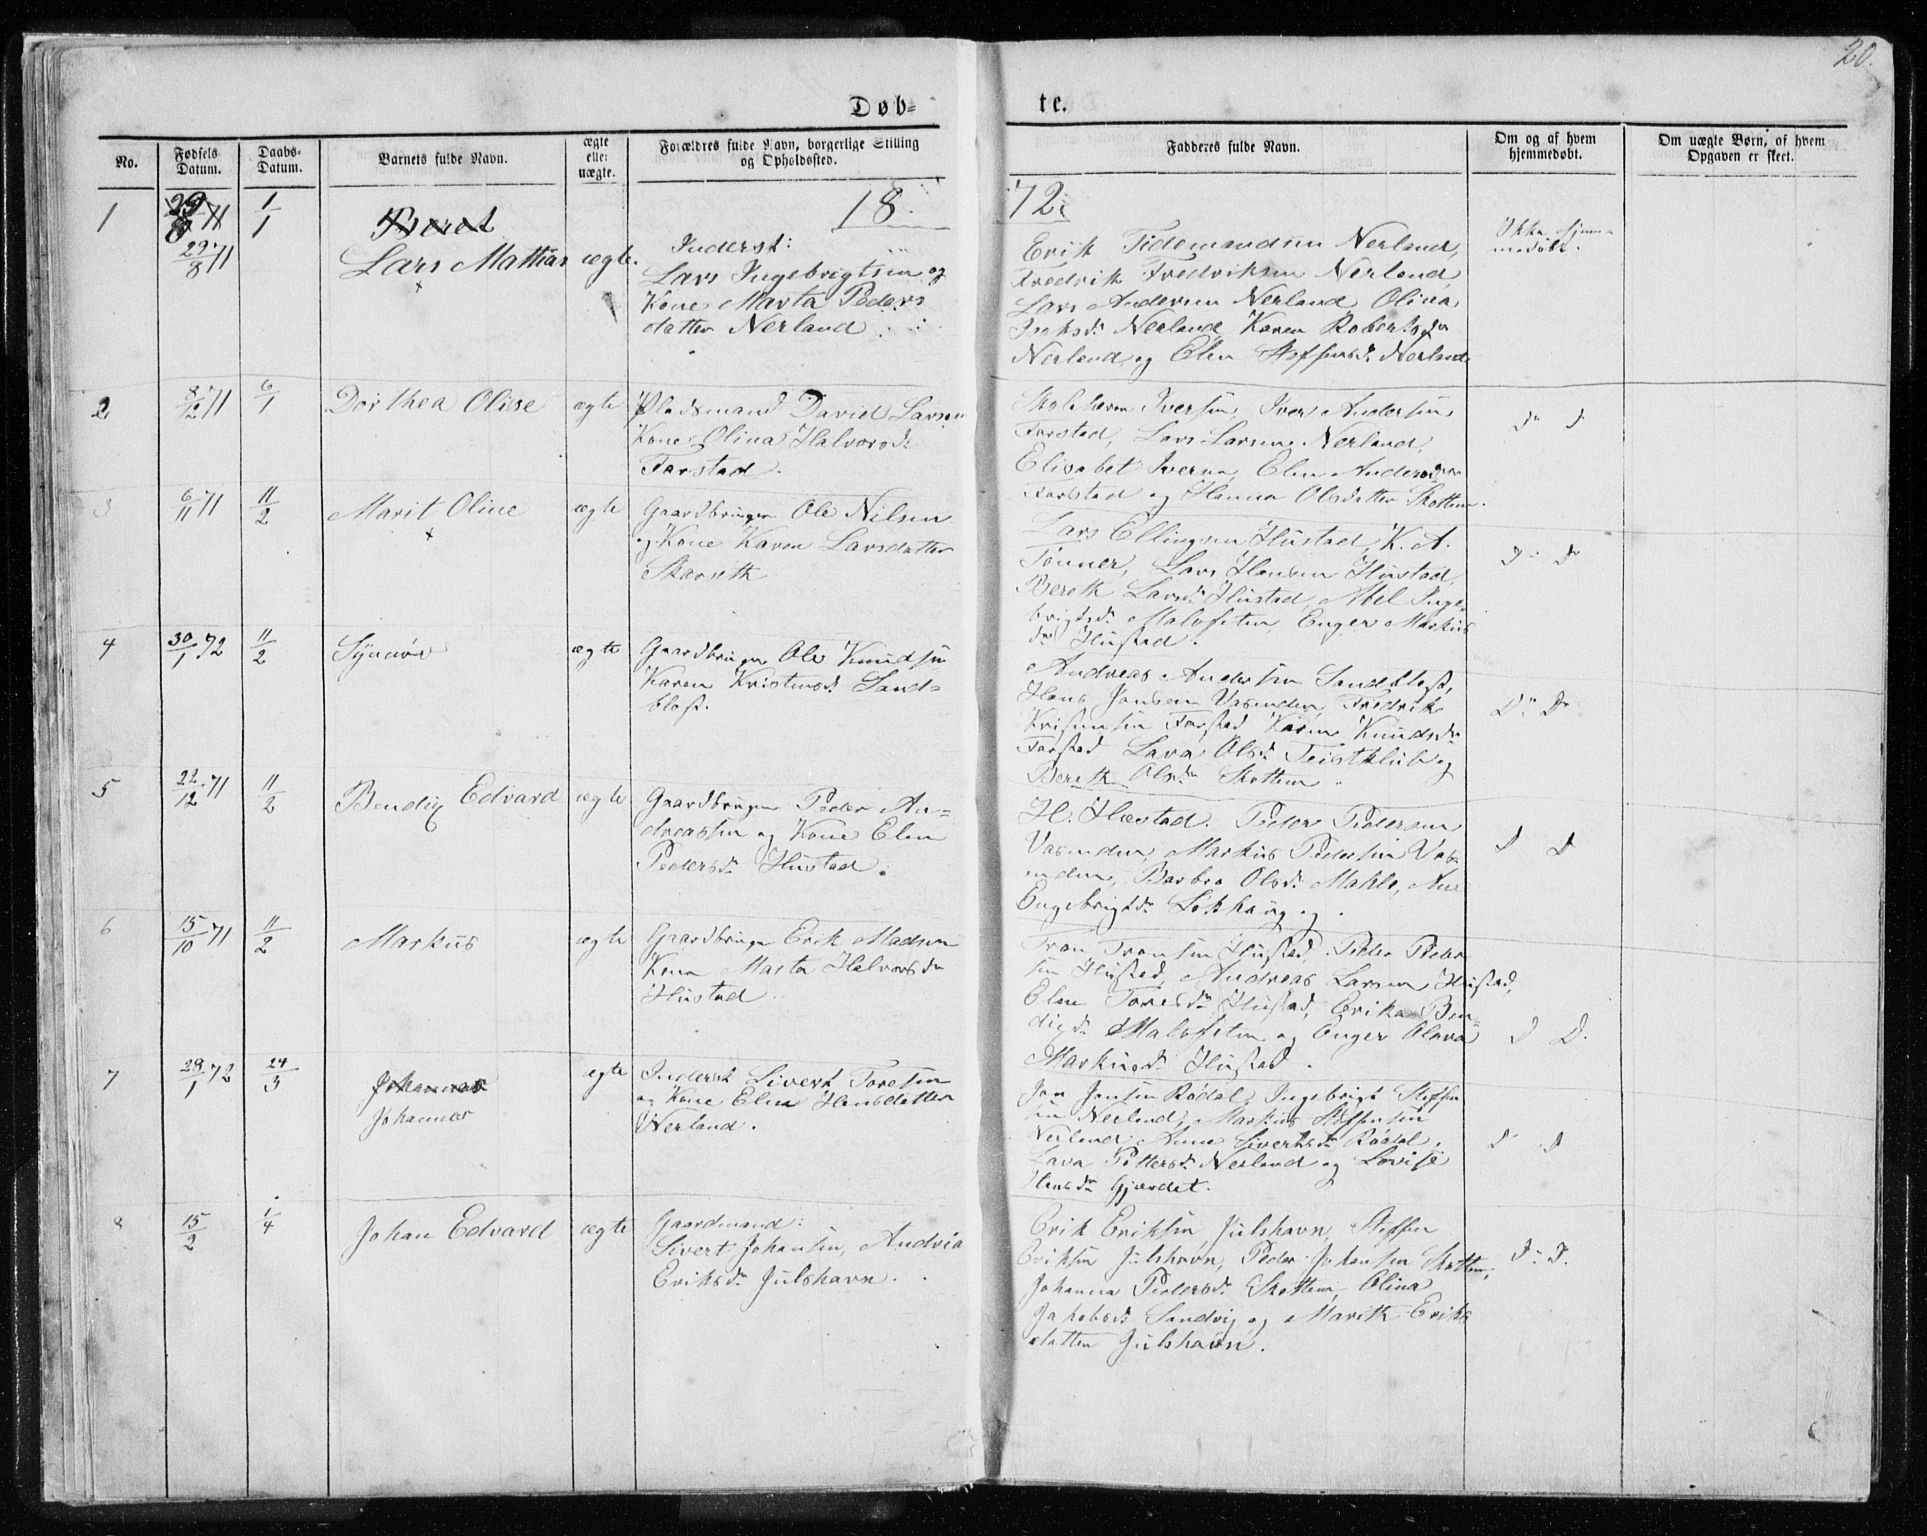 20.
Døb= te.
No. Fødsels Datum. Daabs- Datum. Barnets fulde Navn. ægte eller uægte. Forældres fulde Navn, borgerlige Stilling og Opholdssted. Fadderes fulde Navn. Om og af hvem hjemmedøbt. Om uægte Børn, af hvem Opgaven er skeet.
18 72
1 29/8 71 1/1 Beret
29/8 71 Lars Mattias ægte. Inderst:
Lars Ingebrigtsen og
Kone Marta Peders
datter Nerland
Erik Tidemandsen Nerland,
Fredrik Fredriksen Nerland,
Lars Andersen Nerland Olina
Isaksdr Nerland, Karen Robertsdr
Nerland og Elen Steffensdr Nerland
Ikke hjem-
medøbt.
2 8/12 71 6/1 Dorthea Olise ægte Pladsmand David Larsen
Kone Olina Halvorsdr
Farstad.
Iversen, Iver Andersen
Farstad, Lars Larsen Nerland,
Elisabet Iversen, Elen Andersdr
Farstad og Hanna Olsdatter Skottem.
Do Do
3 6/11 71 11/2 Marit Oline ægte Gaardbruger Ole Nilsen
og Kone Karen Larsdatter
Skarseth
Lars Ellingsen Hustad, K. A.
Tønner, Lars Hansen Hustad,
Bereth Larsdr Hustad, Abel Inge-
brigtsdr Malefeten, Enger Markus
dr Hustad.
Do Do
4 30/1 72 11/2 Synnøv ægte Gaardbruger Ole Knudsen
Karen Kristensdr Sand=
blost.
Andreas Andersen Sandblost,
Hans Jonsen Vasenden, Fredrik
Kristensen Farstad Karen Knudsdr
Farstad Lava Olsdr Teistklub og
Bereth Olsdr Skottem.
Do Do
5 22/12 71 11/2 Bendix Edvard ægte Gaardbruger Peder An=
dreassen og Kone Elen
Pedersdr Hustad.
H. Hustad. Peder Pedersen
Vasenden, Markus Pedersen Vas-
enden, Barbra Olsdr Mahle, Ane
Engebrigtsdr Løkhaug og.
D D
6 15/10 71 11/2 Markus ægte Gaardbruger Erik Madsen
Kone Marta Halvorsdr
Hustad
Tron Tronsen Hustad, Peder Peder
sen Hustad, Andreas Larsen Hustad,
Elen Toresdr Hustad, Erika Ben-
dixdr Malefeten og Enger Olava
Markusdr Hustad.
D D.
7 29/1 72 24/3 Johannes
Johannes
ægte Inderst Sivert Toresen
og Kone Elen Hansdatter
Nerland.
Jon Jonsen Rødal, Ingebrigt Steffen
sen Nerland, Markus Steffensen
Nerland Anne Sivertsdr Rødal.
Lava Pettersdr Nerland og Lovise
Hansdr Gjerdet.
D D
8 15/2 1/4 Johan Edvard ægte Gaardmand:
Sivert Johansen, Andria
Eriksdr Julshavn.
Erik Eriksen Julshavn, Steffen
Eriksen Julshavn, Peder Johansen Skottem,
Johanna Pedersdr Skottem, Olina
Jakobsdr Sandvig og Marith Eriks
datter Julshavn.
D. D.